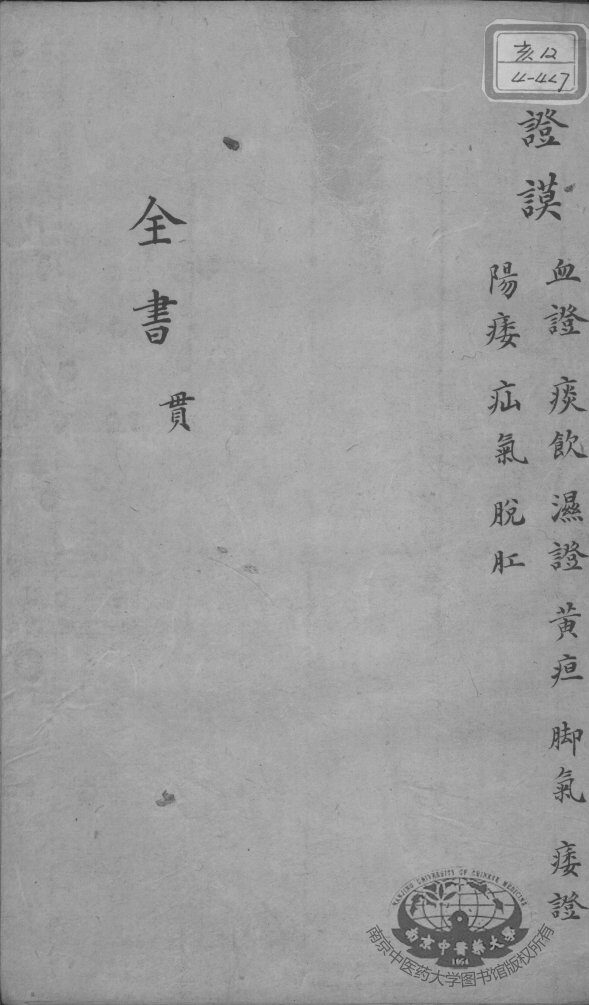 亥12
4-447
證謨
血證 痰飲 濕證 黃疸 脚氣 痿證
陽痿 疝氣 脫肛
全書 貫
NANJING UNIVERSITY OF CHINESE MEDICINE
南京中醫藥大學
1954
南京中医药大学图书馆版权所有